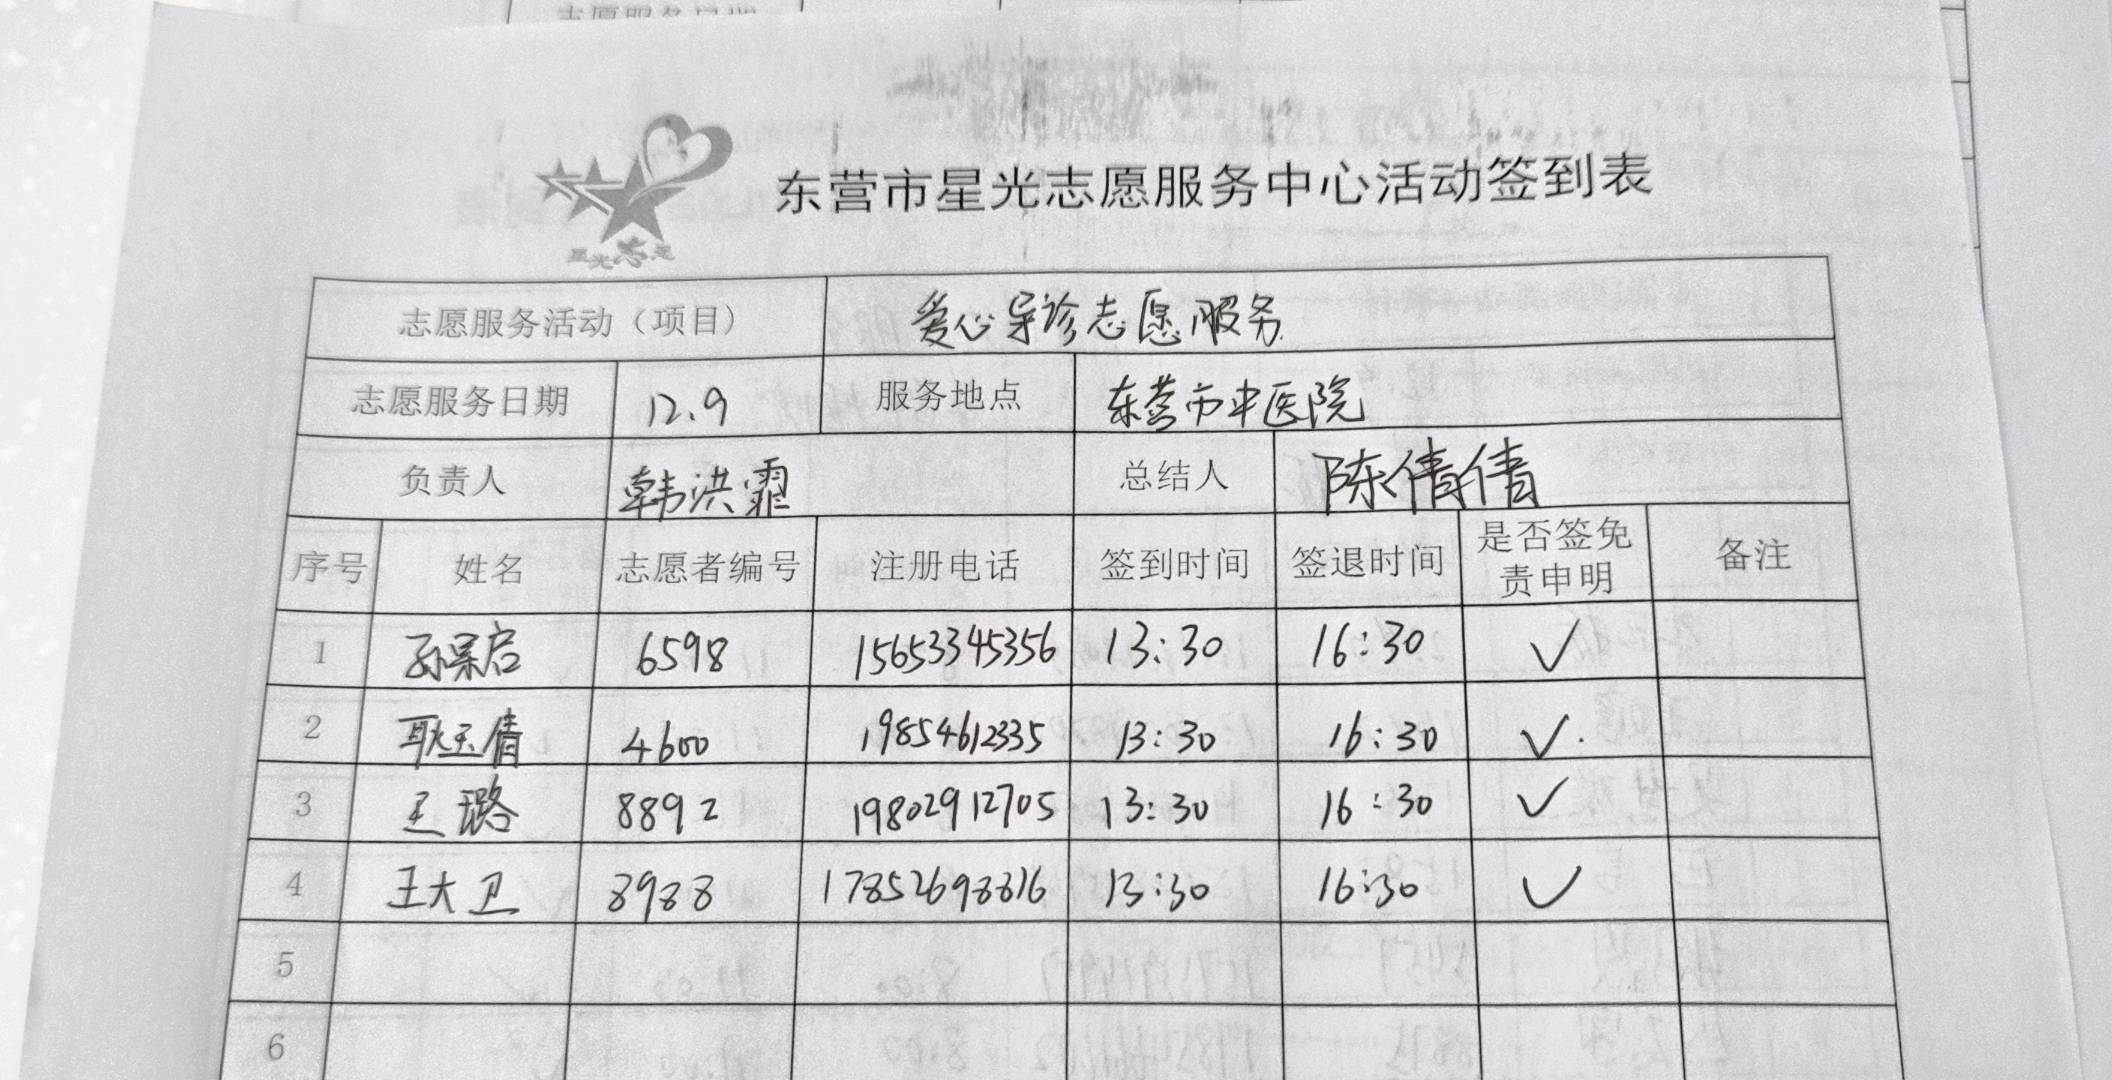 东营市星光志愿服务中心活动签到表
星光志愿
志愿服务活动（项目） 爱心导诊志愿服务
志愿服务日期 12.9 服务地点 东营市中医院
负责人 韩洪霏 总结人 陈倩倩
序号 姓名 志愿者编号 注册电话 签到时间 签退时间 是否签免责申明 备注
1 孙杲启 6598 15653345356 13:30 16:30 ✓
2 耿玉倩 4600 19854612335 13:30 16:30 ✓
3 王璐 8892 19802912705 13:30 16:30 ✓
4 王大卫 8988 17852698816 13:30 16:30 ✓
5
6